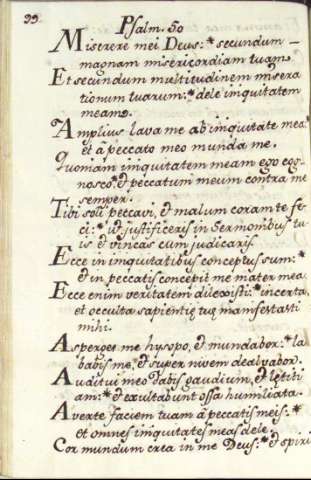 99.
Psalm. 50
Misrere mei Deus: * secundum
magnam misericordiam tuam.
Et secundum multitudinem misera
tionum tuarum: * dele iniquitatem
meam.
Amplius lava me ab iniquitate mea
et à peccato meo munda me.
Quoniam iniquitatem meam ego cog-
nosco * et peccatum meum contra me
semper.
Tibi soli peccavi, et malum coram te fe-
ci: * ut justificeris in Sermonibus tu-
is et vincas cum judicaris.
Ecce in iniquitatibus conceptus sum: *
et in peccatis concepit me mater mea
Ecce enim veritatem dilexisti: * incerta,
et occulta sapientiæ tuæ manifestasti
mihi.
Asperges me hysopo, et mundabor: * la
babis me, et super nivem dealvabor.
Auditui meo dabis gaudium, et lætiti
am: * et exultabunt ossa humiliata.
Averte faciem tuam à peccatis meis: *
et omnes iniquitates meas dele.
Cor mundum crea in me Deus: * et spiri